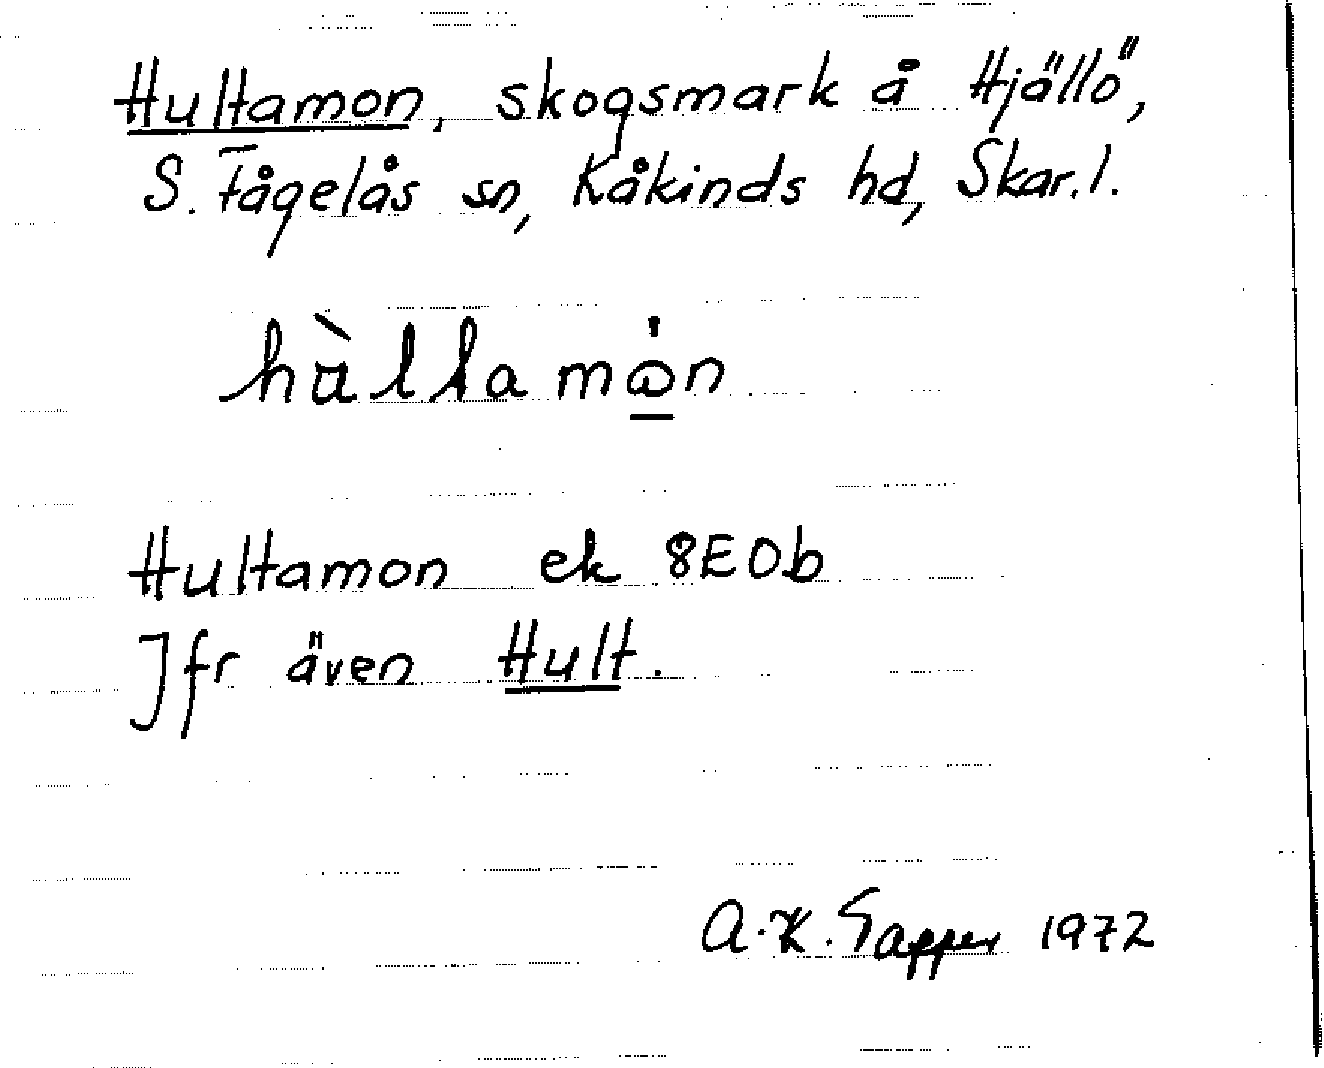 Hultamon, skogsmark å Hjällö,
S. Fågelås sn, Kåkinds hd, Skar. l.
hàllamȯn
Hultamon ek 8E0b
Jfr även Hult.
A. K. 1972